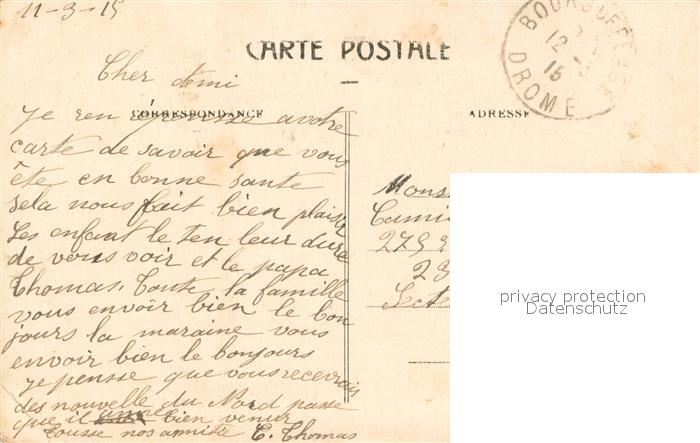 11-3-15
BOURG DE PEAGE
12
15
DROME
CARTE POSTALE
Cher ami
CORRESPONDANCE
ADRESSE
Je ren avotre
carte de savoir que vous
ête en bonne sante
sela nous fait bien plaisir
Les enfant le ten leur dure
de vous voir et le papa
Thomas. Toute la famille
vous envoir bien le bon
jours la maraine vous
envoir bien le bonjours
je pensse que vous recevrais
des nouvelle du Nord passe
que il bien venir
Tousse nos amitié E. Thomas
Mons
Cami
279
23
Secte
privacy protection
Datenschutz